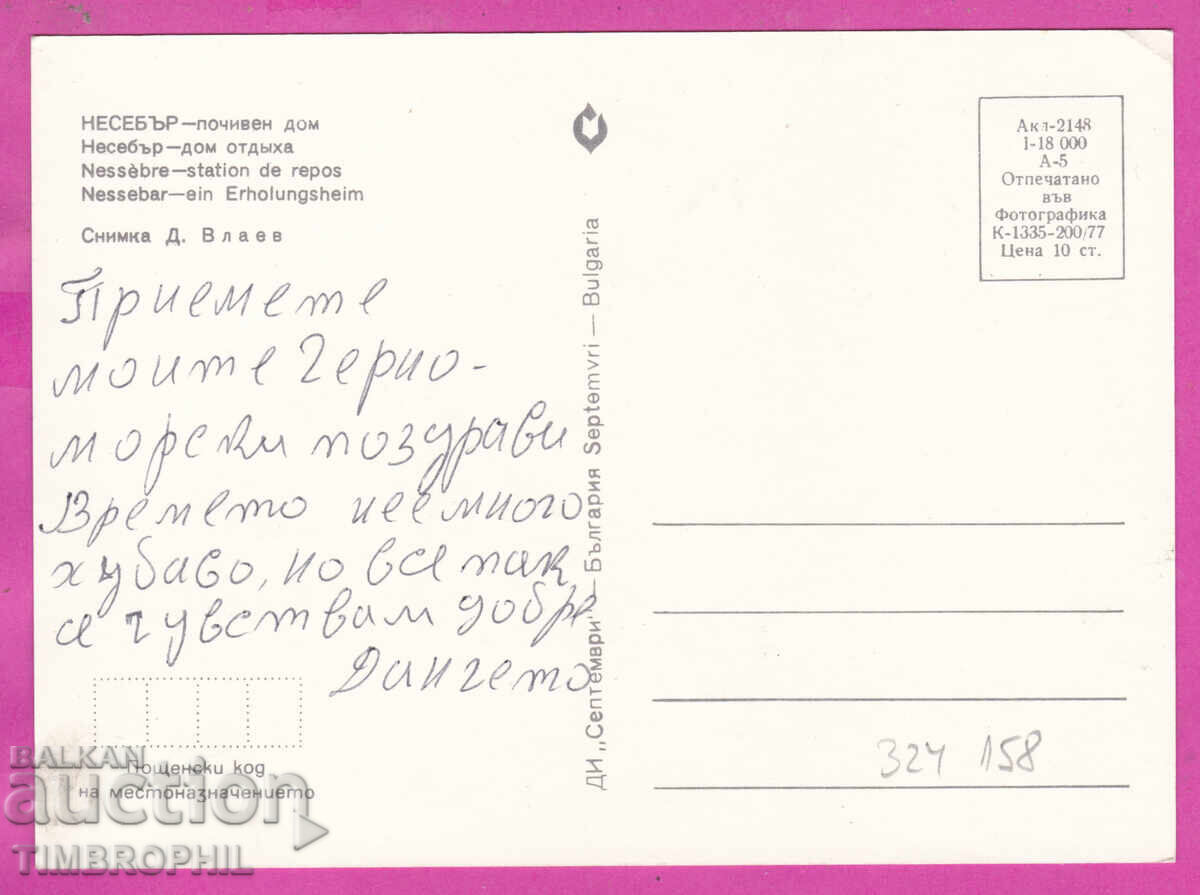 НЕСЕБЪР—почивен дом
Несебър—дом отдыха
Nessèbre—station de repos
Nessebar—ein Erholungsheim
Снимка Д. Влаев
Приемете
моите Черно-
морски поздрави
Времето не е много
хубаво, но все пак
се чувствам добре
Дангето
Пощенски код
на местоназначението
ДИ „Септември“ — България Septemvri — Bulgaria
Акл-2148
1-18 000
А-5
Отпечатано
във
Фотографика
К-1335-200/77
Цена 10 ст.
324 158
BALKAN
auction
TIMBROPHIL